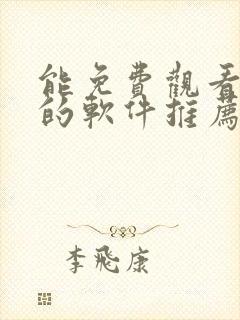 能免費觀看
的軟件推薦
李飛康